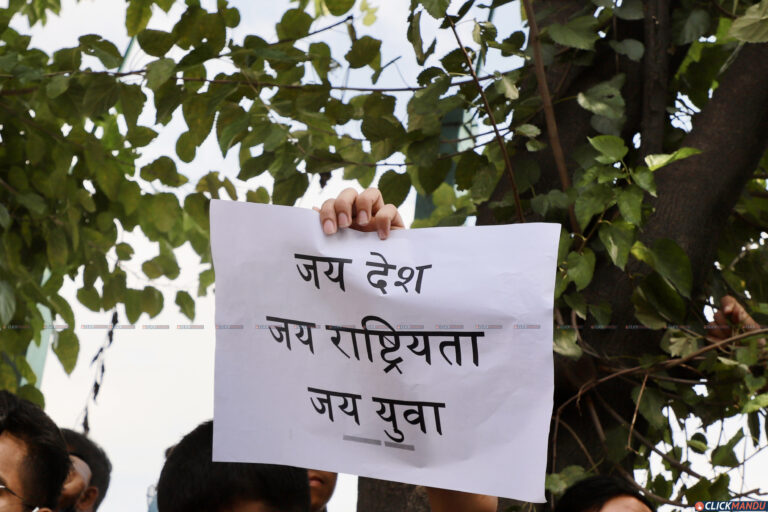 जय देश
जय राष्ट्रियता
जय युवा
CLICKMANDU